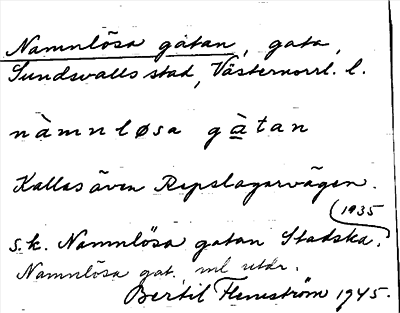 Namnlösa gatan, gata,
Sundsvalls stad, Västernorrl. l.
nàmnløsa gàtan
Kallas även Repslagarvägen.
(1935
s.k. Namnlösa gatan Stadska.
Namnlösa gat. ml utdr.
Bertil Flemström 1945.